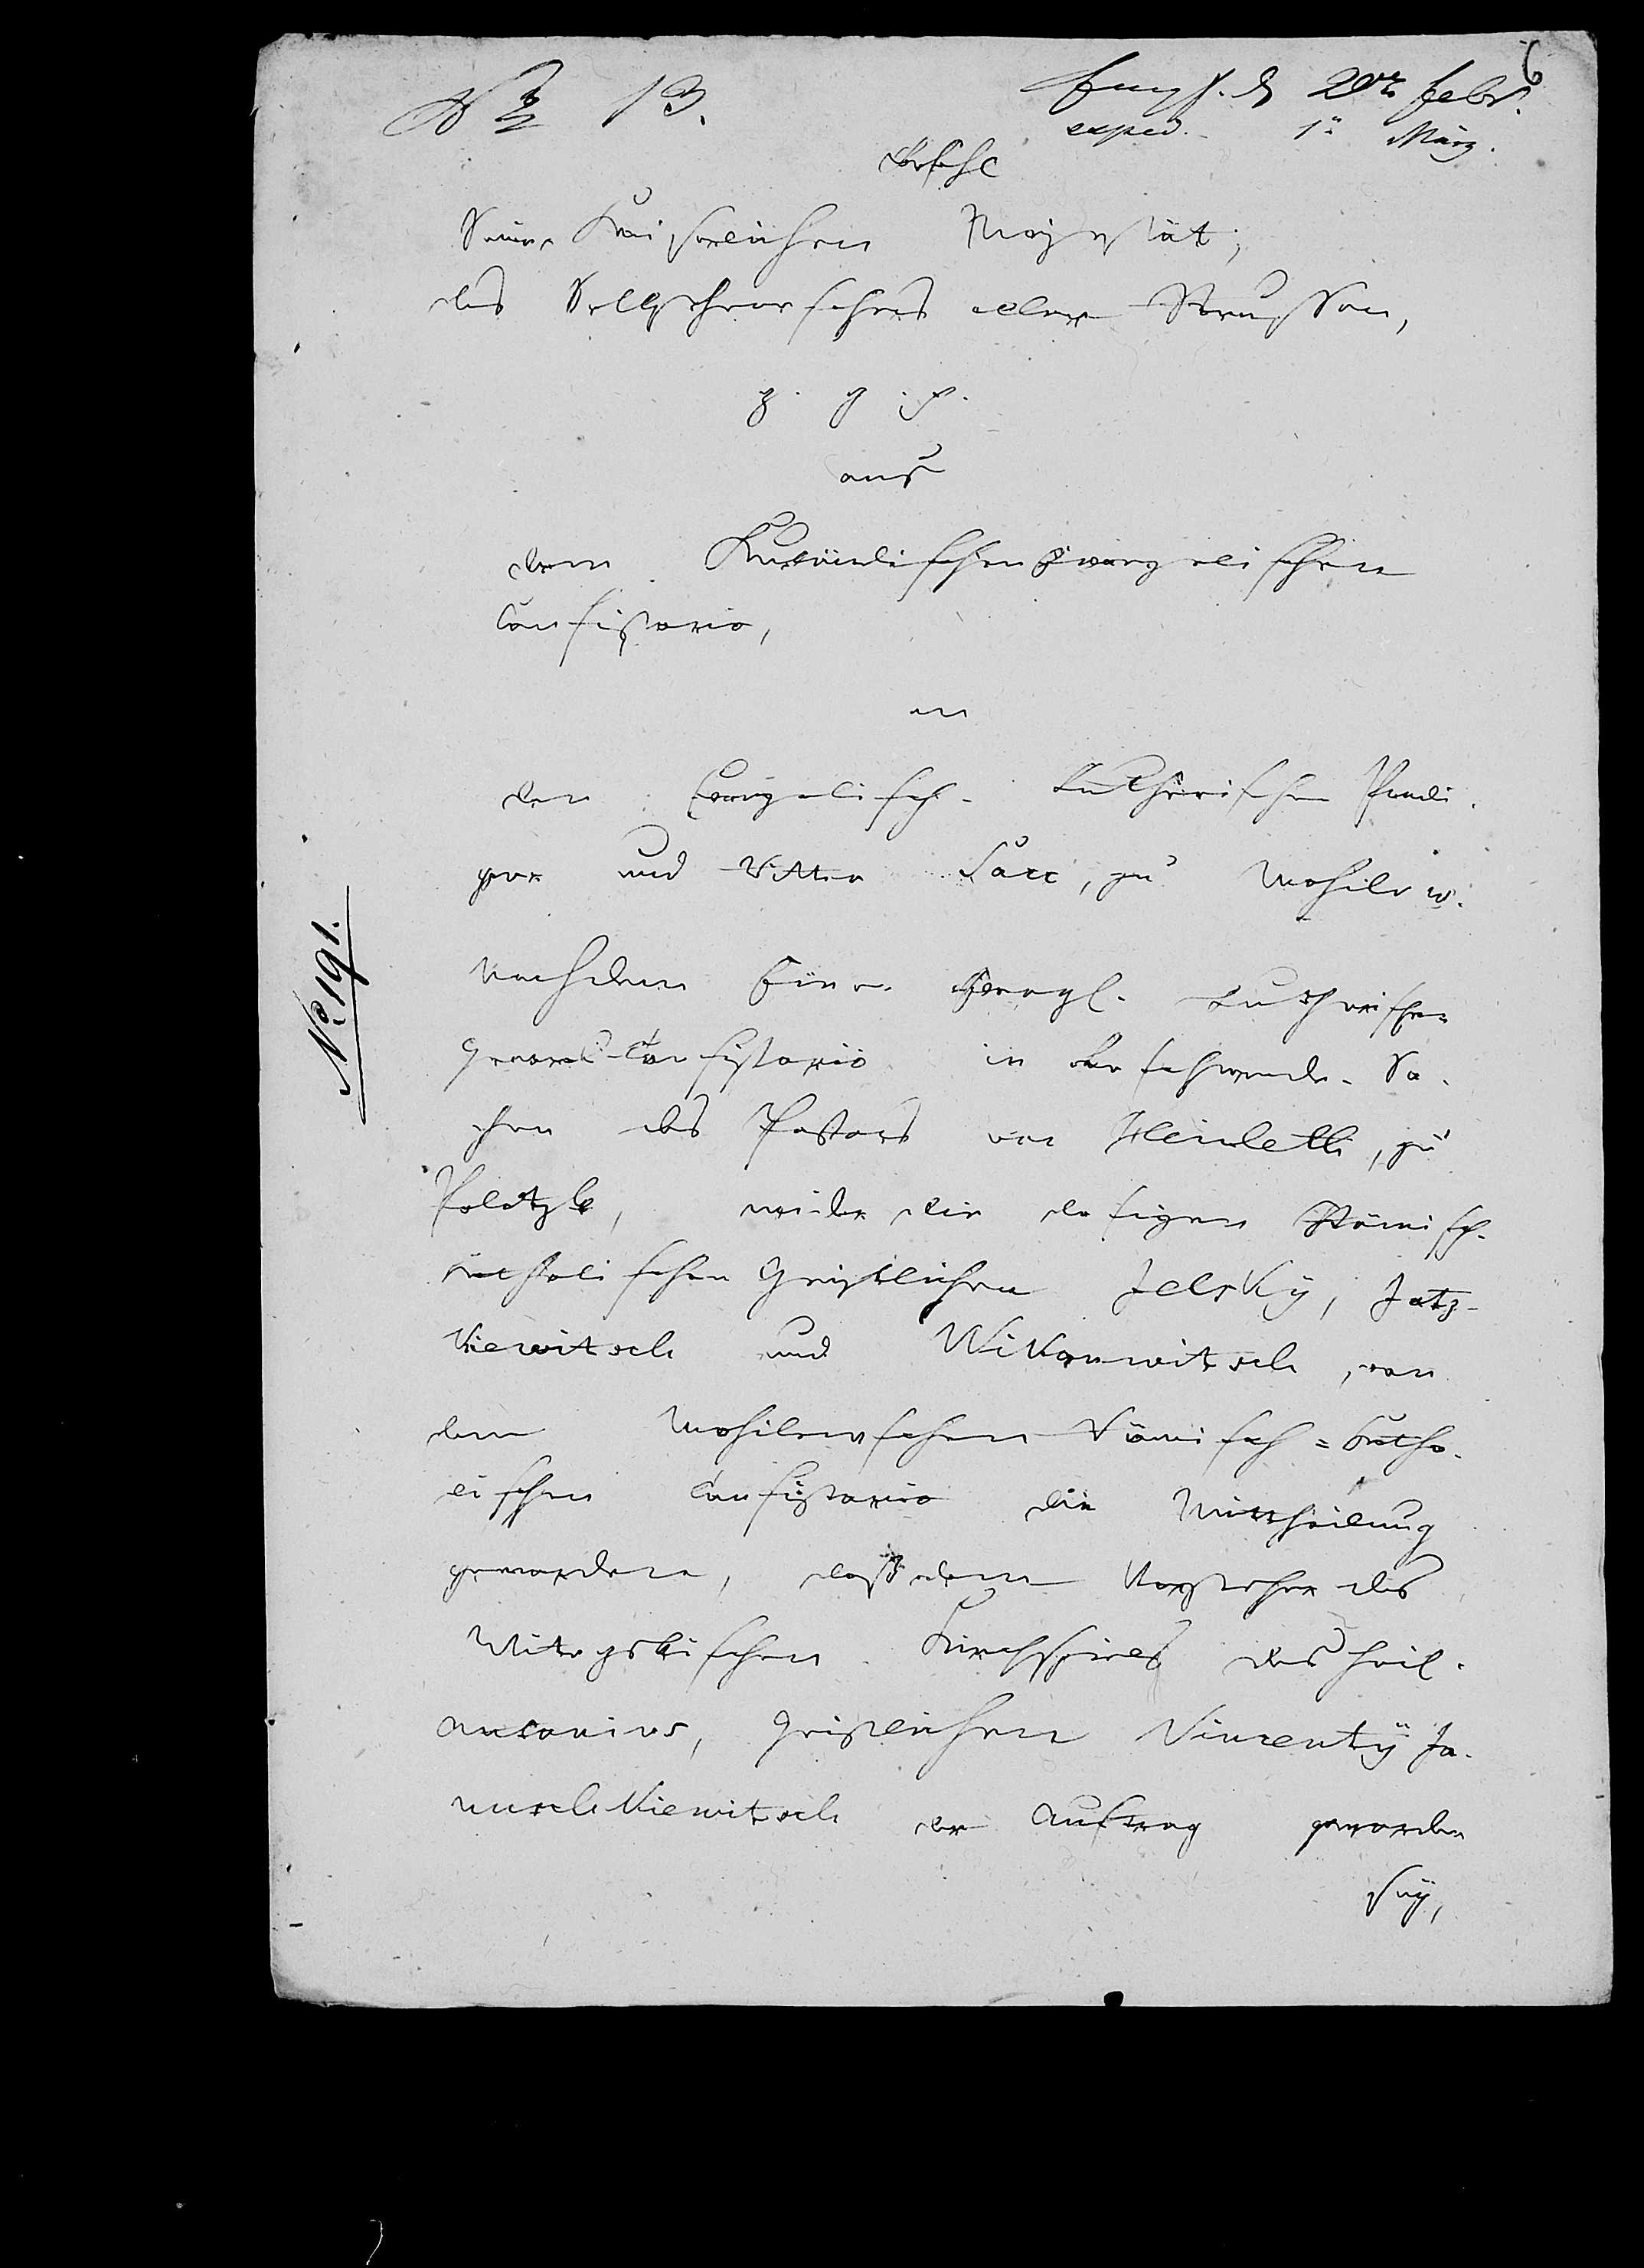 6
№ 13.
Empf. d 20ten Febr.
exped. 1n März.
Befehl
Seiner Kaiserlichen Majestät,
des Selbstherrschers aller Reussen,
aus
dem Kurländischen Evangelischen
Consistorio,
an
den Evangelisch-Lutherischen Predi-
ger und Ritter Sacc, zu Mohilew.
No. 191.
Nachdem Einem Evangl. Lutherischen
General-Consistorio in Beschwerde-Sa-
chen des Pastors von Heinleth, zu
Polotzk, wider die dasigen Römisch-
katholischen Geistlichen Jelsky, Jatz-
kiewitsch und Wikonwitsch, von
dem Mohilewschen Römisch=katho-
lischen Consistorio die Mittheilung
geworden, daß dem Vorsteher des
Witepskischen Kirchspiels des heil.
Antonius, Geistlichen Vincentÿ Ja-
nuschkiewitsch der Auftrag geworden
seÿ,